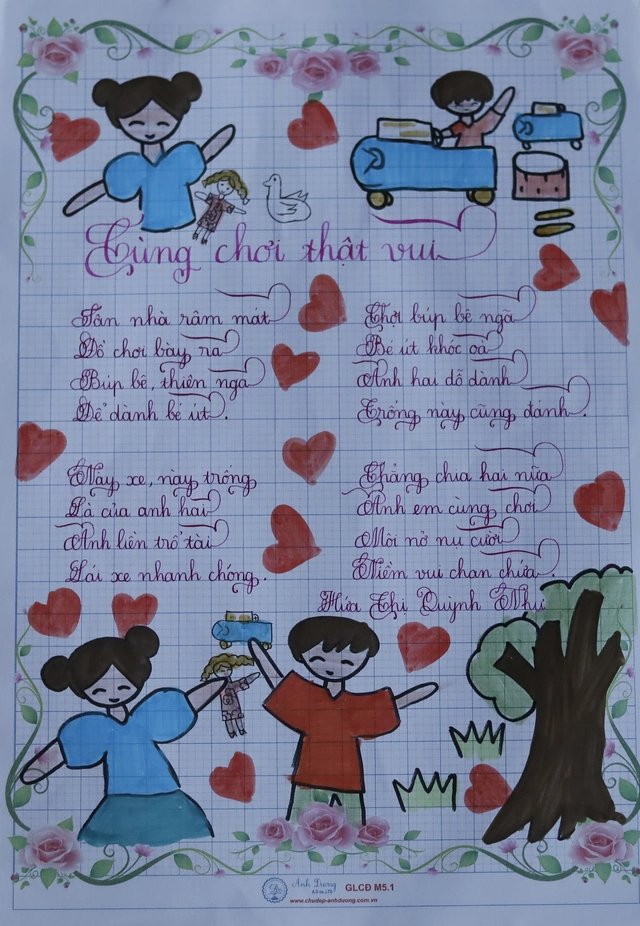 Cùng chơi thật vui
Sân nhà râm mát
Đồ chơi bày ra
Búp bê, thiên nga
Để dành bé út.
Này xe, này trống
Là của anh hai
Anh liền trổ tài
Lái xe nhanh chóng.
Chợt búp bê ngã
Bé út khóc oà
Anh hai dỗ dành
Trống này cũng đánh.
Chẳng chia hai nữa
Anh em cùng chơi
Môi nở nụ cười
Niềm vui chan chứa.
Hứa Thị Quỳnh Như
Ánh Dương
GLCĐ M5.1
www.chudep-anhduong.com.vn